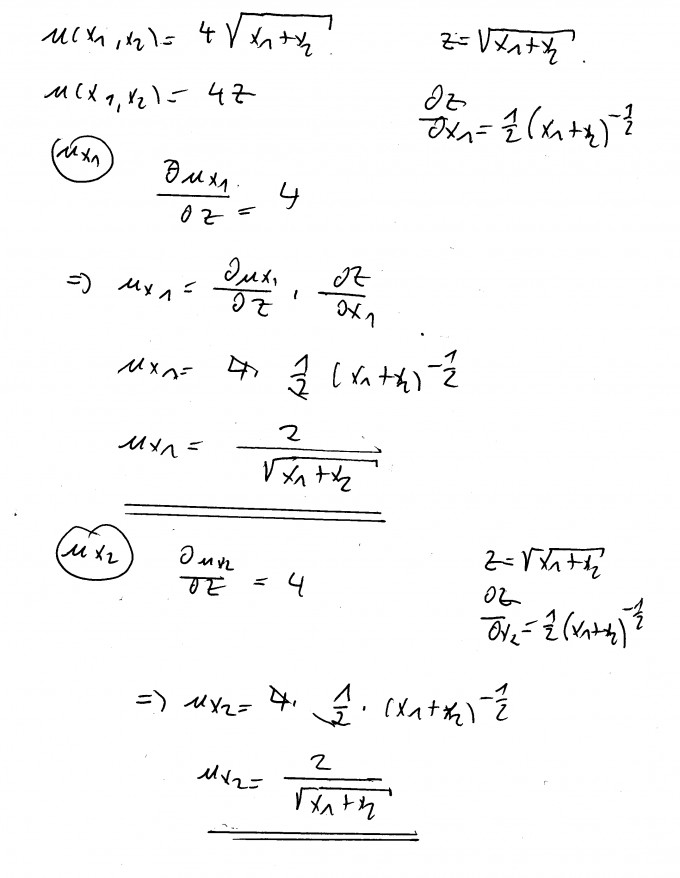 u(x₁,x₂) = 4√(x₁+x₂) z = √(x₁+x₂).
u(x₁,x₂) = 4z ∂z/∂x₁ = 1/2 (x₁+x₂)^(-1/2)
ux₁
∂ux₁/∂z = 4
=> ux₁ = ∂ux₁/∂z · ∂z/∂x₁
ux₁ = 4 · 1/2 (x₁+x₂)^(-1/2)
ux₁ = 2/√(x₁+x₂)
ux₂ ∂ux₂/∂z = 4 z = √(x₁+x₂)
∂z/∂x₂ = 1/2 (x₁+x₂)^(-1/2)
=> ux₂ = 4 · 1/2 · (x₁+x₂)^(-1/2)
ux₂ = 2/√(x₁+x₂)